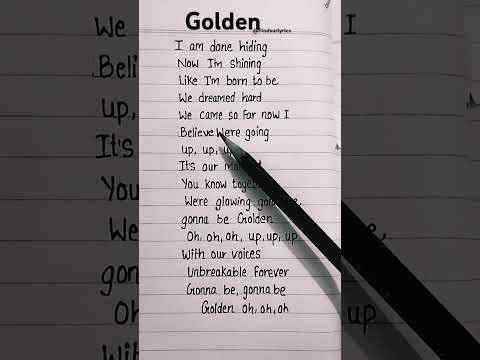 Golden
@Findurlyrics
I am done hiding
Now I'm shining
Like I'm born to be
We dreamed hard
We came so far now I
Believe We're going
up, up, u
It's our mo
You know toget
We're glowing gon
gonna be Golden
Oh, oh, oh, up, up, up
With our voices
Unbreakable Forever
Gonna be, gonna be
Golden oh, oh, oh